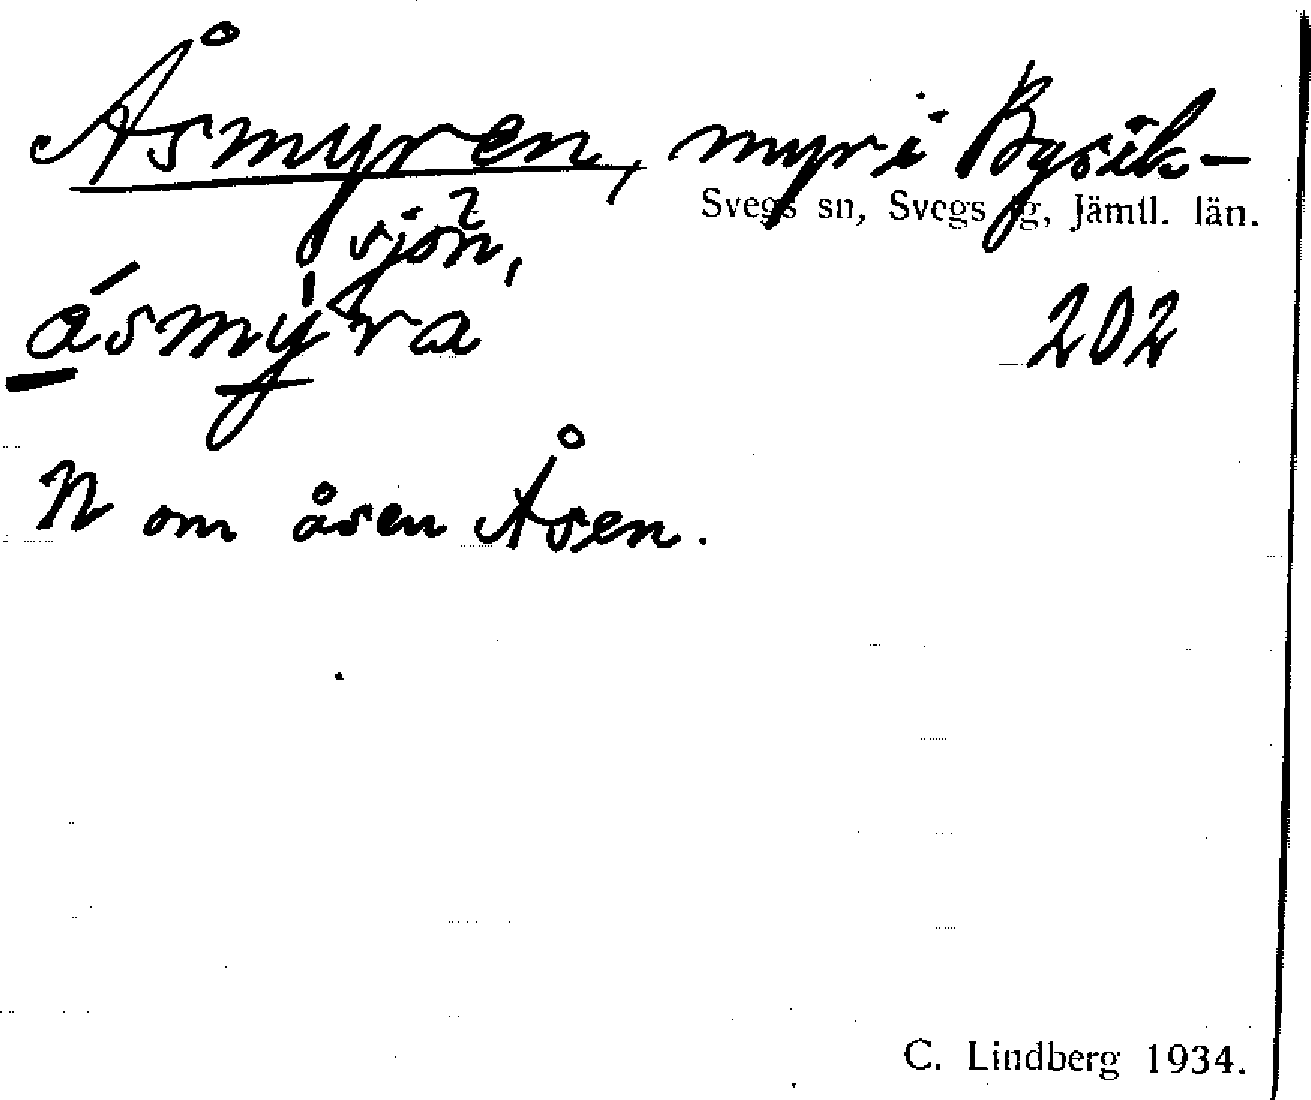 Åsmyren, myr i Bysik-
sjön,
Svegs sn, Svegs tg, Jämtl. län.
ásmýra
202
N om åsen Åsen.
C. Lindberg 1934.